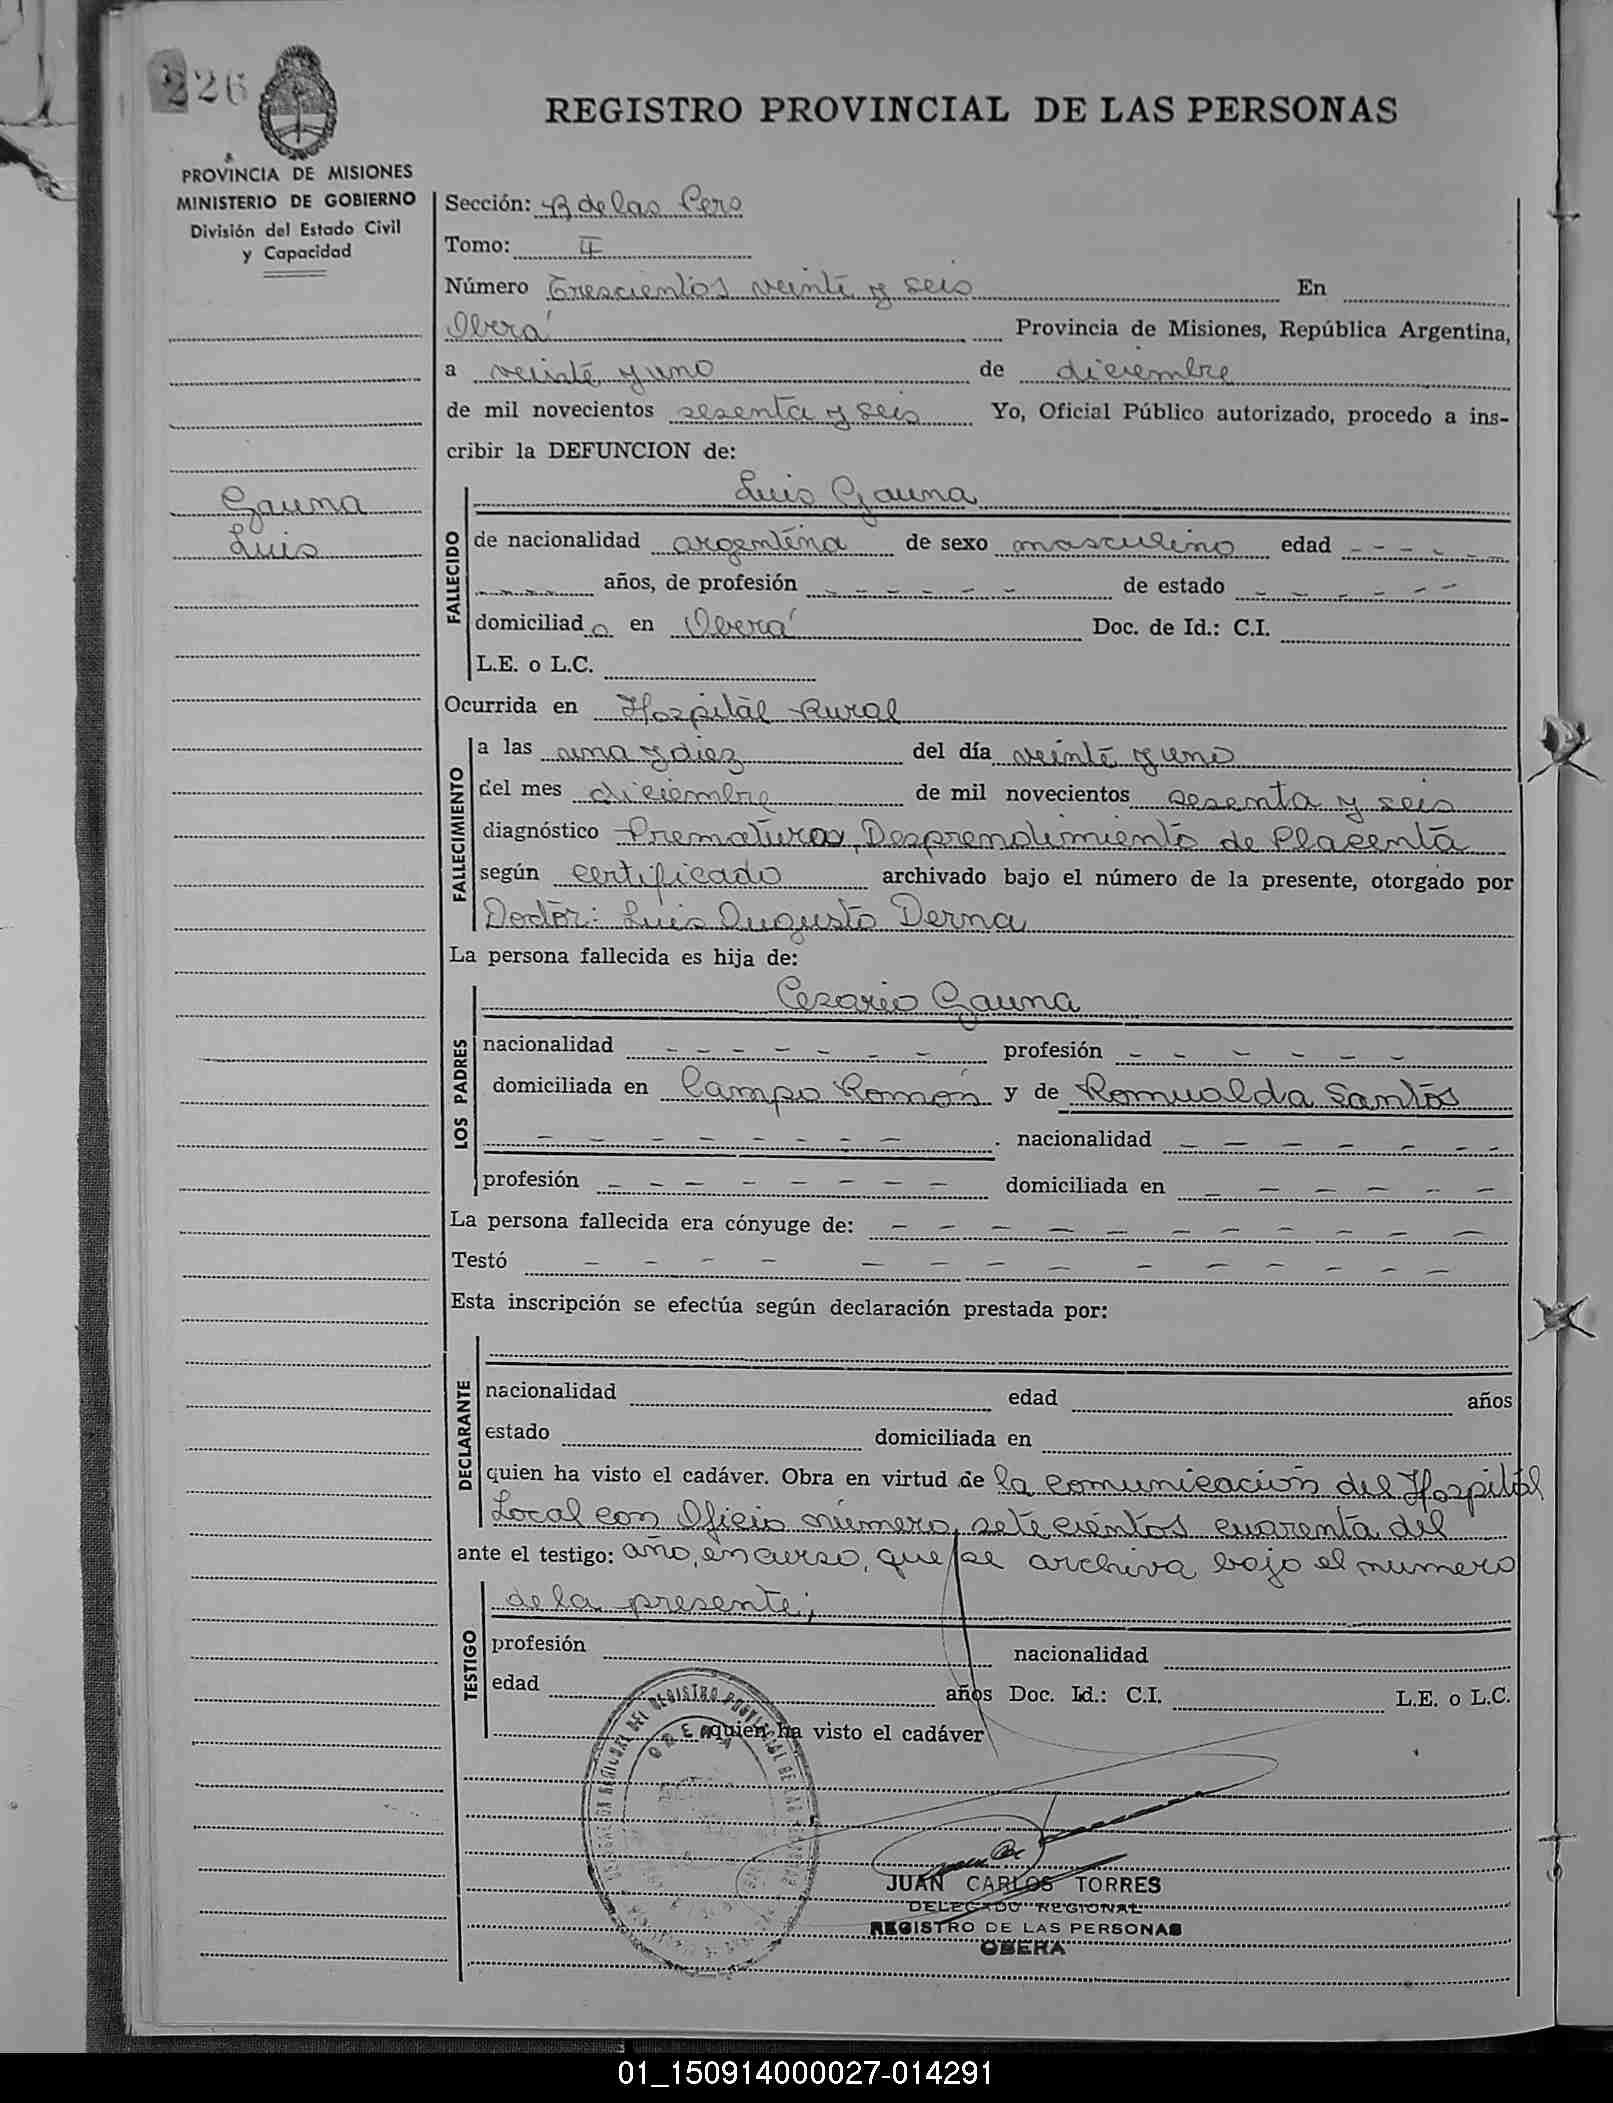 226
REGISTRO PROVINCIAL DE LAS PERSONAS
PROVINCIA DE MISIONES
MINISTERIO DE GOBIERNO
División del Estado Civil
y Capacidad
Gauna
Luis
Sección: R de las Pers
Tomo: II
Número Trescientos veinte y seis En
Oberá Provincia de Misiones, República Argentina,
a veinte y uno de diciembre
de mil novecientos sesenta y seis Yo, Oficial Público autorizado, procedo a ins-
cribir la DEFUNCION de:
Luis Gauna
FALLECIDO
de nacionalidad argentina de sexo masculino edad - - - - - -
- - - - - años, de profesión - - - - - - de estado - - - - - -
domiciliad o en Oberá Doc. de Id.: C.I.
L.E. o L.C.
Ocurrida en Hospital Rural
FALLECIMIENTO
a las una y diez del día veinte y uno
del mes diciembre de mil novecientos sesenta y seis
diagnóstico Prematuro, Desprendimiento de Placenta
según certificado archivado bajo el número de la presente, otorgado por
Doctor: Luis Augusto Derna
La persona fallecida es hija de:
LOS PADRES
Cesario Gauna
nacionalidad - - - - - - - profesión - - - - - -
domiciliada en Campo Ramón y de Romualda Santos
- - - - - - - - . nacionalidad - - - - - - -
profesión - - - - - - - - domiciliada en - - - - - -
La persona fallecida era cónyuge de: - - - - - - - - - - -
Testó - - - - - - - - - - - - - -
Esta inscripción se efectúa según declaración prestada por:
DECLARANTE
nacionalidad edad años
estado domiciliada en
quien ha visto el cadáver. Obra en virtud de la comunicación del Hospital
Local con Oficio número, setecientos cuarenta del
ante el testigo: año, en curso, que se archiva bajo el numero
de la presente;
TESTIGO
profesión nacionalidad
edad años Doc. Id.: C.I. L.E. o L.C.
quien ha visto el cadáver
DELEGACION REGIONAL DEL REGISTRO PROVINCIAL DE LAS
OBERA
JUAN CARLOS TORRES
DELEGADO REGIONAL
REGISTRO DE LAS PERSONAS
OBERA
01_150914000027-014291